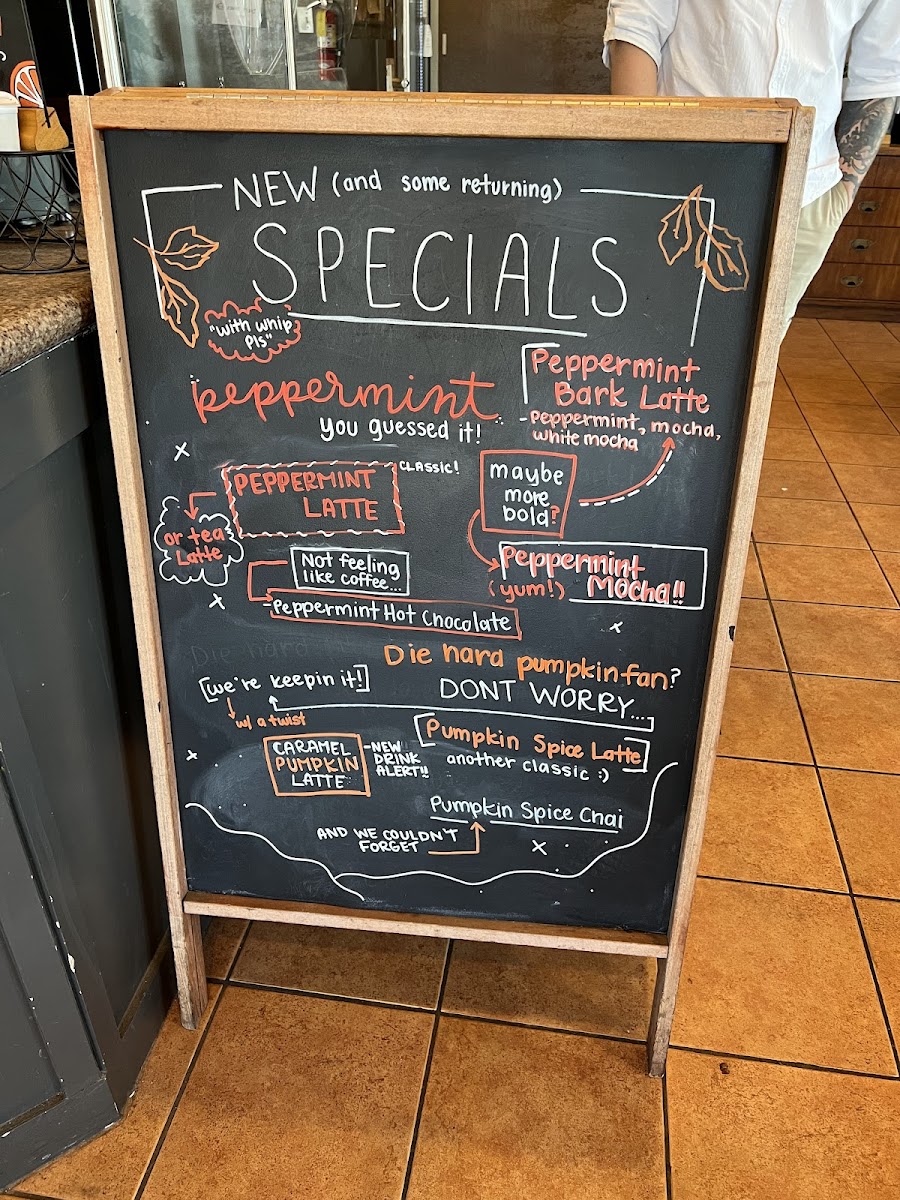 NEW (and some returning)
SPECIALS
"with whip
pls"
peppermint
you guessed it!
Peppermint
Bark Latte
-Peppermint, mocha,
white mocha
PEPPERMINT
LATTE
CLASSIC!
maybe
more
bold?
or tea
Latte
Not feeling
like coffee...
-Peppermint Hot Chocolate
Peppermint
Mocha!!
(yum!)
Die hard pumpkin fan?
DONT WORRY...
[we're keepin it!]
w/ a twist
CARAMEL
PUMPKIN
LATTE
-NEW
DRINK
ALERT!!
Pumpkin Spice Latte
another classic :)
Pumpkin Spice Chai
AND WE COULDN'T
FORGET